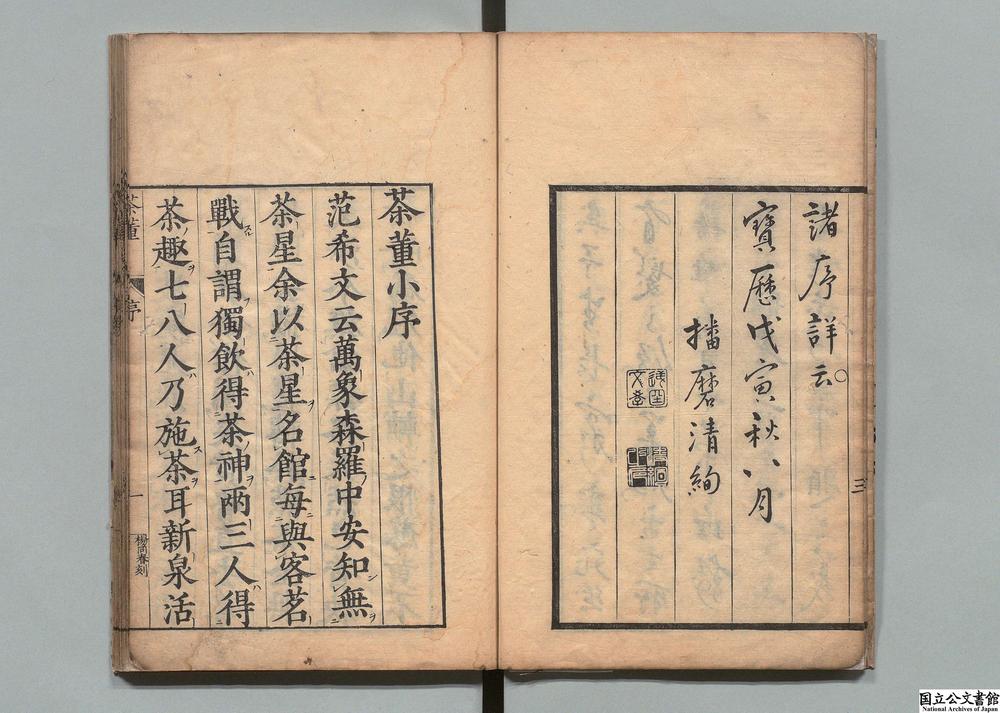 諸序詳云
寶歷戊寅秋八月
播磨清絢
三
茶董小序
范希文云萬象森羅中安知無
茶星余以茶星名館每與客茗
戰自謂獨飲得茶神兩三人得
茶趣七八人乃施茶耳新泉活
茶董
序
一
楊尚春刻
国立公文書館
National Archives of Japan